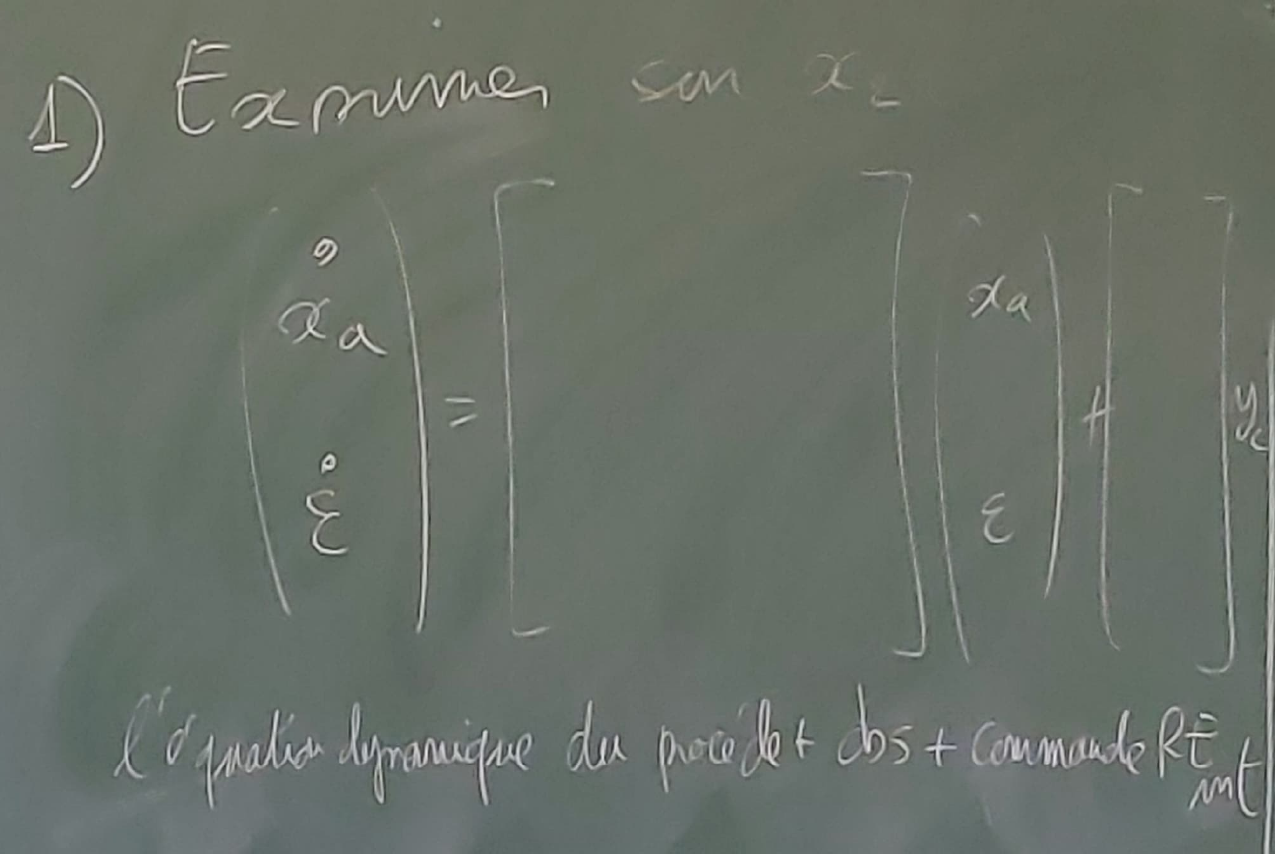 1) Exprimer son x_c
( ẋ_a ) = [ ] ( x_a ) + [ ] y_c
( ε̇ ) ( ε )
l'équation dynamique du procédé + obs + commande RE int